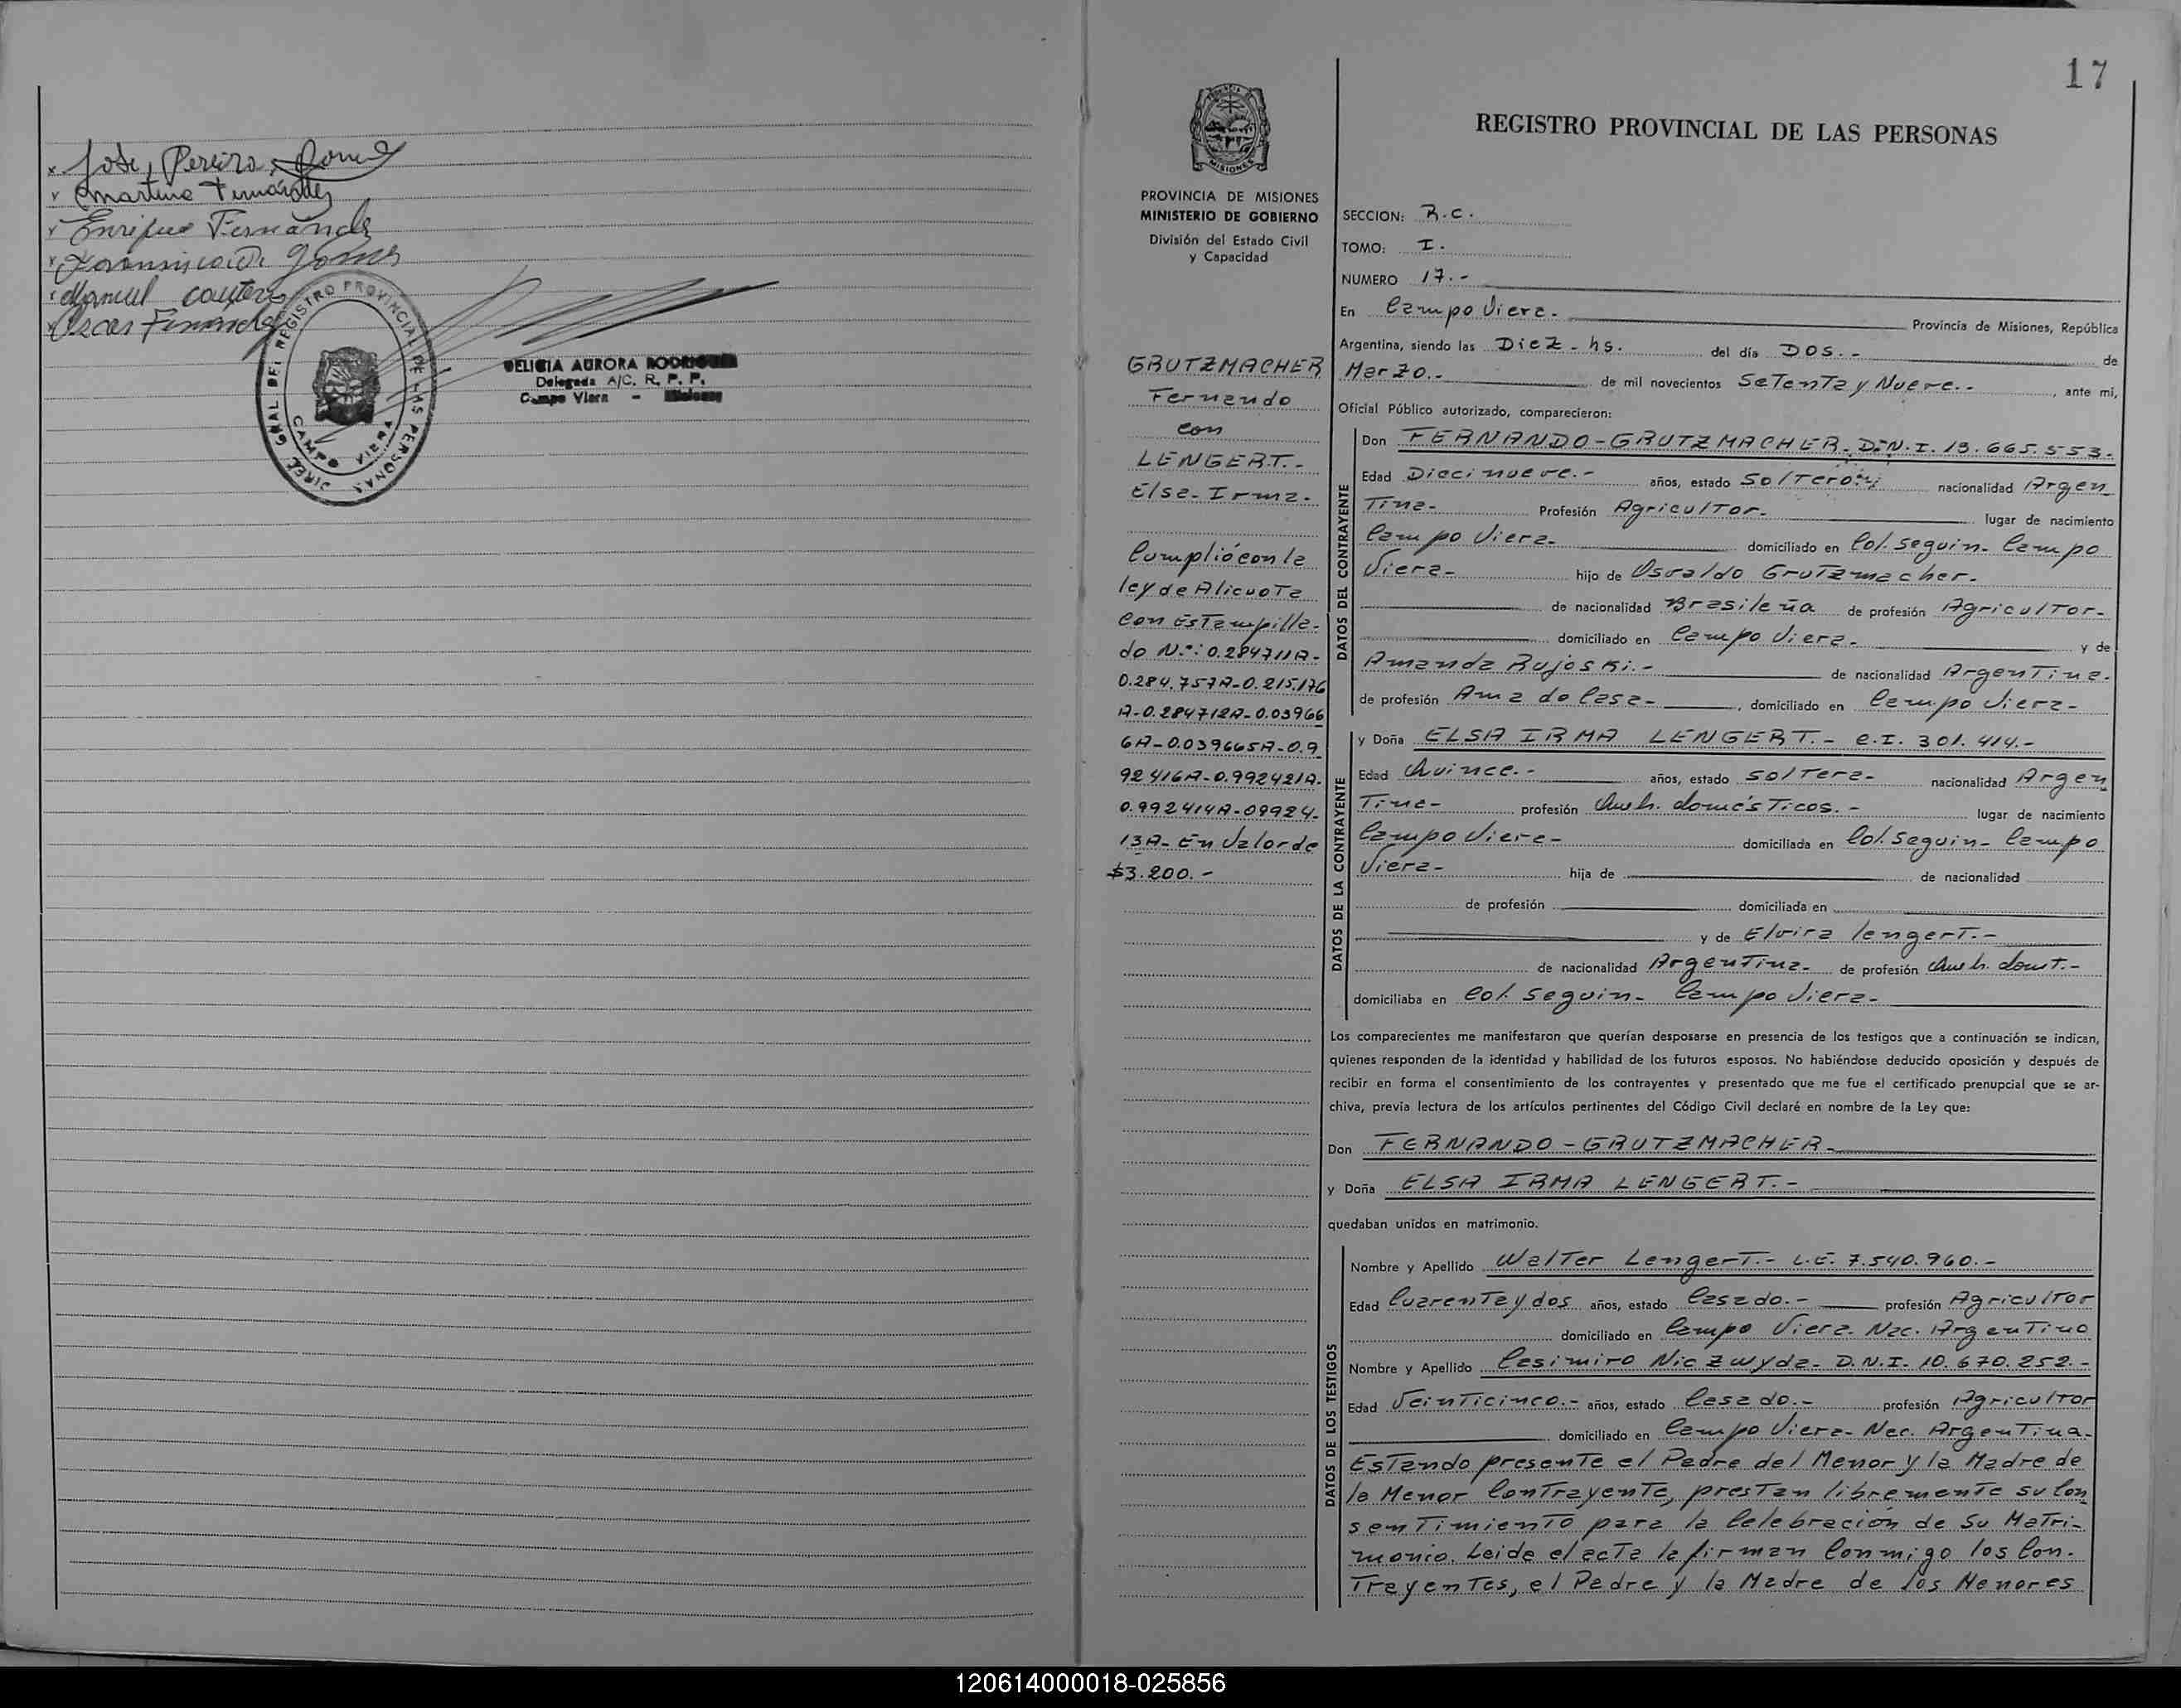 Jose, Pereira, Gome
Martina Fernandes
Enrique Fernandes
Gomes
Manuel
Oscar Fernandes
DIREC. GRAL DEL REGISTRO PROVINCIAL DE LAS PERSONAS
CAMPO VIERA
DELICIA AURORA RODRIGUEZ
Delegada A/C. R. P. P.
Campo Viera - Misiones
17
PROVINCIA DE MISIONES
MINISTERIO DE GOBIERNO
División del Estado Civil
y Capacidad
GRUTZMACHER
Fernando
con
LENGERT.-
Elsa-Irma-
Cumplió con la
ley de Alicuota
con Estampilla-
do N.º: 0.284711A-
0.284.757A-0.215.176
A-0.284712A-0.03966
6A-0.039665A-0.9
92416A-0.992421A-
0.992414A-09924-
13A-En Valor de
$3.200.-
REGISTRO PROVINCIAL DE LAS PERSONAS
SECCION: R.C.
TOMO: I.
NUMERO 17.-
En Campo Viera.- Provincia de Misiones, República
Argentina, siendo las Diez-hs. del día DOS.- de
Marzo.- de mil novecientos Setenta y Nueve.-, ante mí,
Oficial Público autorizado, comparecieron:
DATOS DEL CONTRAYENTE
Don FERNANDO-GRUTZMACHER.D.N.I.13.665.553.
Edad Diecinueve.- años, estado Soltero nacionalidad Argen
tina- Profesión Agricultor- lugar de nacimiento
Campo Viera- domiciliado en Col. Seguin-Campo
Viera- hijo de Osvaldo Grutzmacher.
de nacionalidad Brasileña de profesión Agricultor-
domiciliado en Campo Viera- y de
Amanda Rujoski.- de nacionalidad Argentina-
de profesión Ama de Casa-, domiciliado en Campo Viera-
DATOS DE LA CONTRAYENTE
y Doña ELSA IRMA LENGERT.- C.I. 301.414.-
Edad Quince.- años, estado Soltera- nacionalidad Argen
tina- profesión Queh. domésticos.- lugar de nacimiento
Campo Viera- domiciliada en Col. Seguin-Campo
Viera- hija de de nacionalidad
de profesión domiciliada en
y de Elvira Lengert.-
de nacionalidad Argentina- de profesión Queh. domt.-
domiciliaba en Col. Seguin-Campo Viera-
Los comparecientes me manifestaron que querían desposarse en presencia de los testigos que a continuación se indican,
quienes responden de la identidad y habilidad de los futuros esposos. No habiéndose deducido oposición y después de
recibir en forma el consentimiento de los contrayentes y presentado que me fue el certificado prenupcial que se ar-
chiva, previa lectura de los artículos pertinentes del Código Civil declaré en nombre de la Ley que:
Don FERNANDO-GRUTZMACHER-
y Doña ELSA IRMA LENGERT.-
quedaban unidos en matrimonio.
DATOS DE LOS TESTIGOS
Nombre y Apellido Walter Lengert.- L.E. 7.540.960.-
Edad Cuarenta y dos años, estado Casado.- profesión Agricultor
domiciliado en Campo Viera-Nac. Argentino
Nombre y Apellido Casimiro Niczwyda-D.N.I.10.670.252.-
Edad Veinticinco.- años, estado Casado.- profesión Agricultor
domiciliado en Campo Viera-Nac. Argentina-
Estando presente el Padre del Menor y la Madre de
la Menor Contrayente, prestan libremente su Con
sentimiento para la Celebración de Su Matri-
monio. Leida el acta la firman Conmigo los Con-
trayentes, el Padre y la Madre de los Menores
120614000018-025856